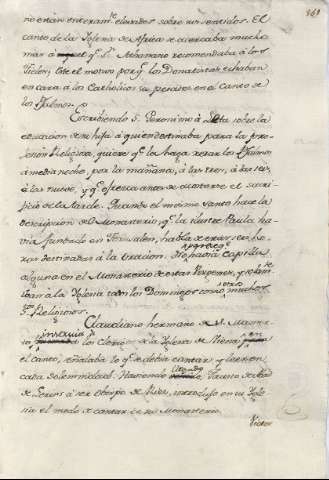 no eran entera[...] sobre sus sentidos. El
canto de la Yglesia de Africa se acercaba mucho
mas á aquel q.e S.n Athanasio recomendaba á los
Fieles; este el motivo por q.e los Donatistas echaban
en cara á los Catholicos su pesadez en el canto de
los Psalmos.
Escribiendo S. Geronimo á Leta sobre la
educacion de su hija á quien destinaba para la pro-
fesion Religiosa, quiere q.e los haga rezar los Psalmos
á media noche, por la mañana, á las tres, á las seis,
á las nueve, y q.e ofrezca antes de acostarse el sacri-
ficio de la tarde. Quando el mismo santo hace la
descripcion del Monasterio q.e la ilustre Paula ha-
via fundado en Jerusalen, habla de estas seis ho-
ras destinadas á la oracion. No havia Capilla
alguna en el Monasterio de estas Virgenes, y
á la Yglesia todos los Domingos como muchos
otros Religiosos.
Claudiano hermano de S. Mamer-
to instruía los Clerigos de la Yglesia de Viena en
el canto, señalaba lo q.e se debia cantar y leer en
cada solemnidad. Haviendo llegado Fausto de Abad
de Lerins á ser Obispo de Riez, introdujo en su Ygle-
sia el modo de cantar de su Monasterio.
Victor